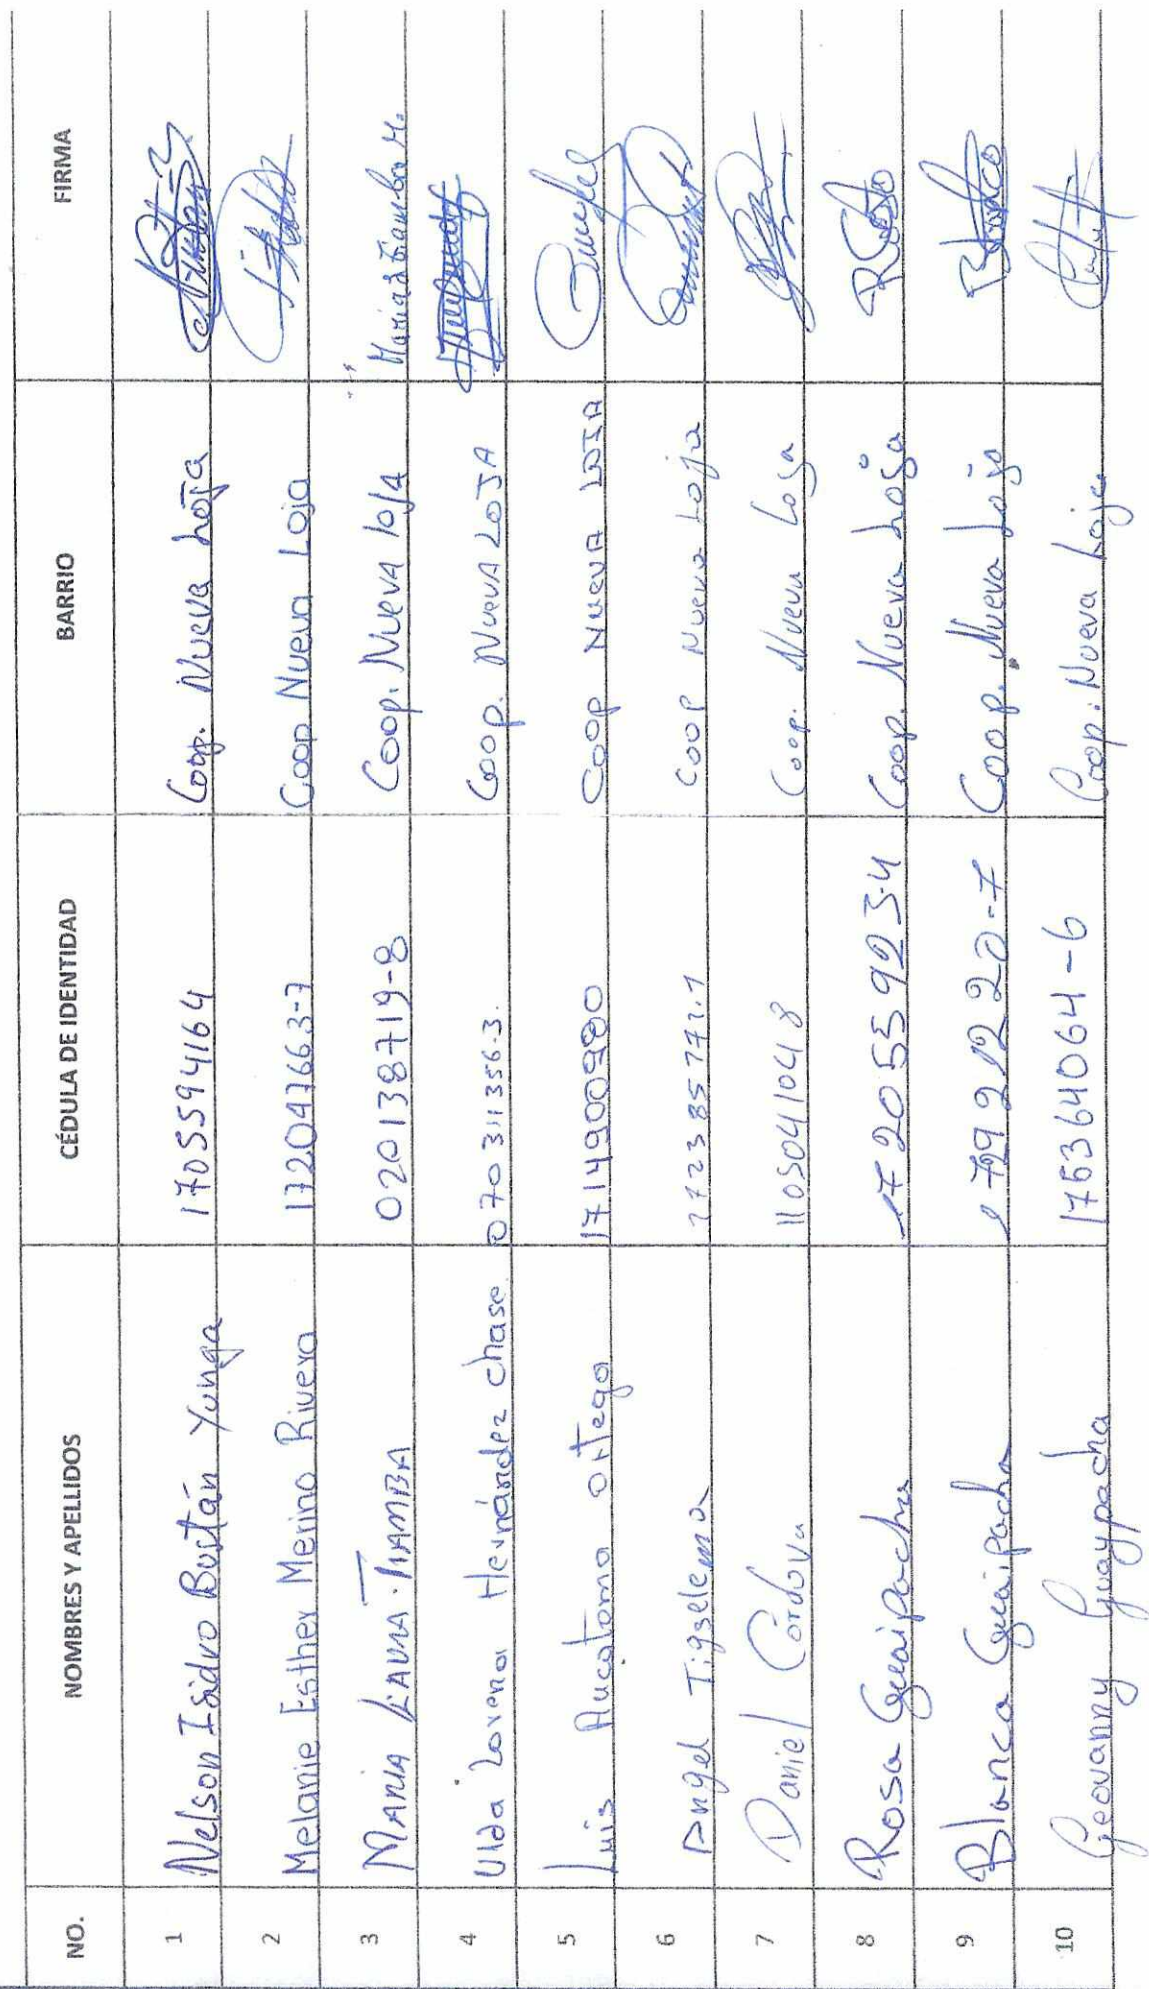 NO. NOMBRES Y APELLIDOS CÉDULA DE IDENTIDAD BARRIO FIRMA
1 Nelson Isidro Bustán Yunga 1705594164 Coop. Nueva Loja
2 Melanie Esther Merino Rivera 172047663-7 Coop Nueva Loja
3 MARIA LAURA TIAMBA 020138719-8 Coop. Nueva loja
4 Ulda Lorena Hernández chaso 070311356-3. Coop. NuevA LOJA
5 Luis Aucatoma ortega 1714900980 Coop NueVA LOJA
6 Angel Tigselema 172385771.1 COOP Nueva Loja
7 Daniel Cordova 1105041048 Coop. Nueva Loja
8 Rosa Guaipacha 172055923-4 Coop. Nueva Loja
9 Blanca Guaipacha Coop. Nueva Loja
10 Geovanny Guaypacha 175364064-6 Coop. Nueva Loja